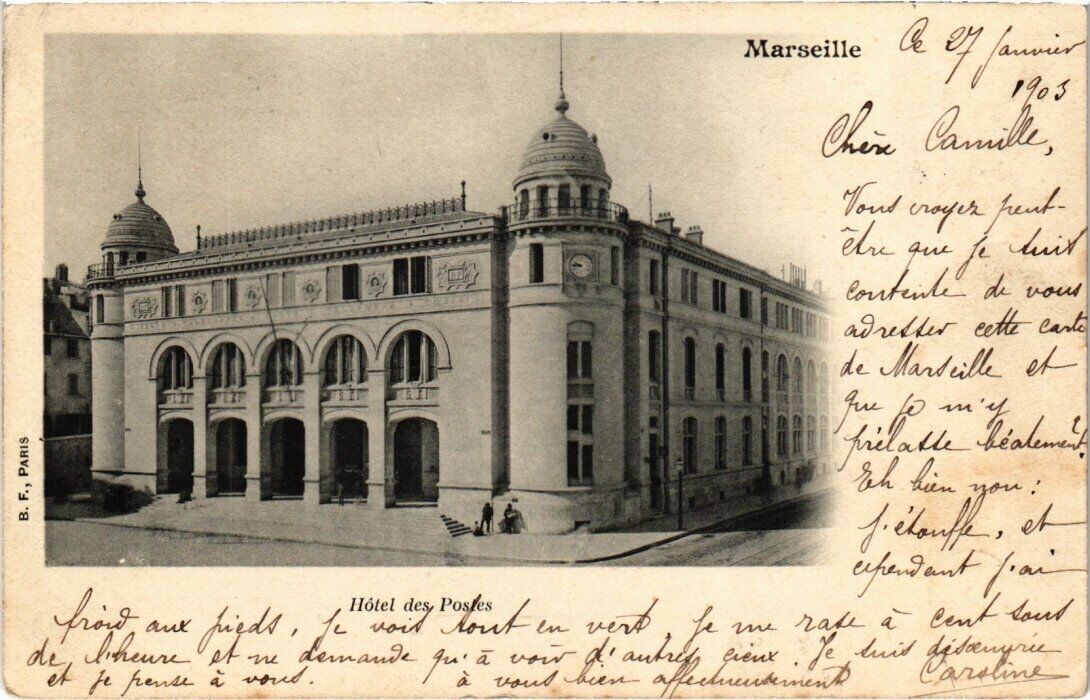 Marseille
Ce 27 Janvier
1903
Chère Camille,
Vous croyez peut-
être que je suis
contente de vous
adresser cette carte
de Marseille et
que je m'y
prélasse béatement?
Eh bien non:
j'étouffe, et
cependant j'ai
froid aux pieds, je vois tout en vert, je me rase à cent sous
de l'heure et ne demande qu'à voir d'autres cieux. Je suis désœuvrée
et je pense à vous. à vous bien affectueusement Caroline
Hôtel des Postes
B. F., PARIS